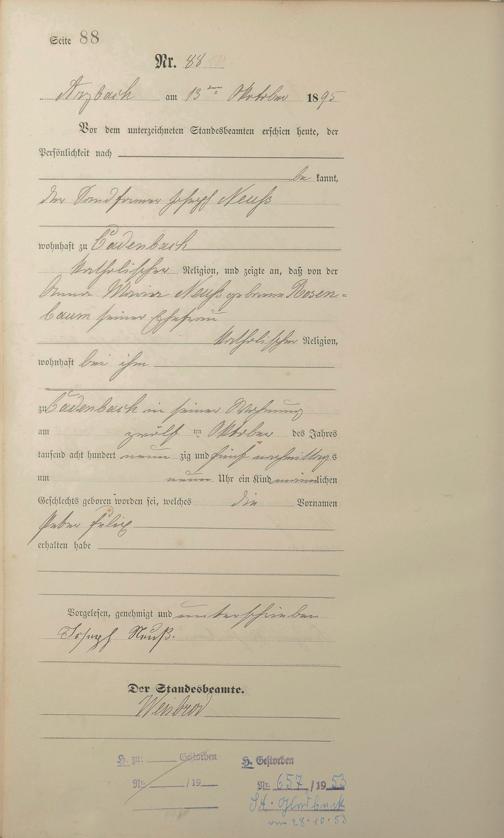 Seite 88
Nr. 88
Arzbach am 13ten Oktober 1895
Vor dem unterzeichneten Standesbeamten erschien heute, der
Persönlichkeit nach
be kannt,
der Sandformer Joseph Neuß
wohnhaft zu Cadenbach
katholischer Religion, und zeigte an, daß von der
Anna Maria Neuß geborene Rosen=
baum seiner Ehefrau
katholischer Religion,
wohnhaft bei ihm
zu Cadenbach in seiner Wohnung
am zwölf ten Oktober des Jahres
tausend acht hundert neun zig und fünf nachmittags
um neun Uhr ein Kind männlichen
Geschlechts geboren worden sei, welches die Vornamen
Peter Felix
erhalten habe
Vorgelesen, genehmigt und unterschrieben
Joseph Neuß.
Der Standesbeamte.
Weisbrod
H. zu: Gestorben
Nr. /19
H. Gestorben
Nr. 657/1953
St. Gladbeck
vom 28.10.53